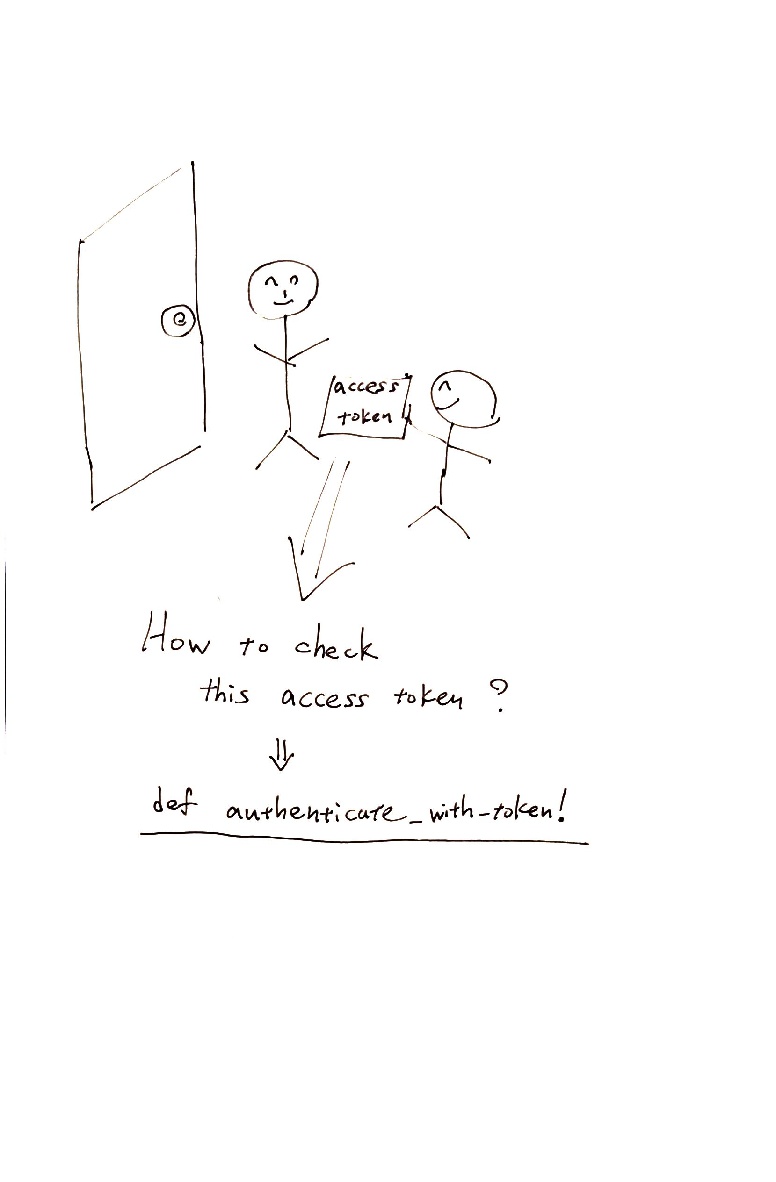 access
token
How to check
this access token ?
⇓
def authenticate_with_token!